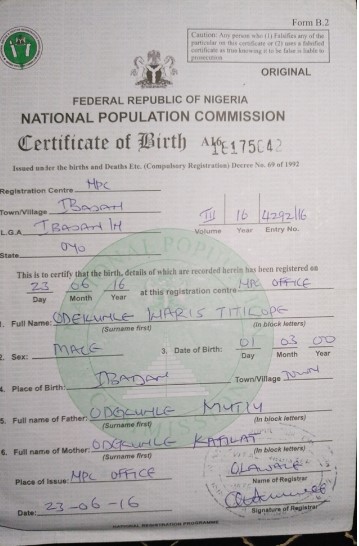 Form B.2
Caution: Any person who (1) Falsifies any of the
particular on this certificate or (2) uses a falsified
certificate as true knowing it to be false is liable to
prosecution
ORIGINAL
FEDERAL REPUBLIC OF NIGERIA
NATIONAL POPULATION COMMISSION
Certificate of Birth
Issued under the births and Deaths Etc. (Compulsory Registration) Decree No. 69 of 1992
Registration Centre NPC
Town/Village IBADAN
L.G.A IBADAN /N III 16 4292/16
Volume Year Entry No.
State OYO
This is to certify that the birth, details of which are recorded herein has been registered on
23 06 16 at this registration centre NPC OFFICE
Day Month Year
1. Full Name: ODEKUNLE WARIS TITILOPE
(Surname first) (In block letters)
2. Sex: MALE 3. Date of Birth: 01 03 00
Day Month Year
4. Place of Birth: IBADAN Town/Village TOWN
5. Full name of Father: ODEKUNLE
(Surname first) (In block letters)
6. Full name of Mother: ODEKUNLE KAFILAT
(Surname first) (In block letters)
Place of Issue: NPC OFFICE OLAWALE
Name of Registrar
Date: 23-06-16 Signature of Registrar
NATIONAL REGISTRATION PROGRAMME